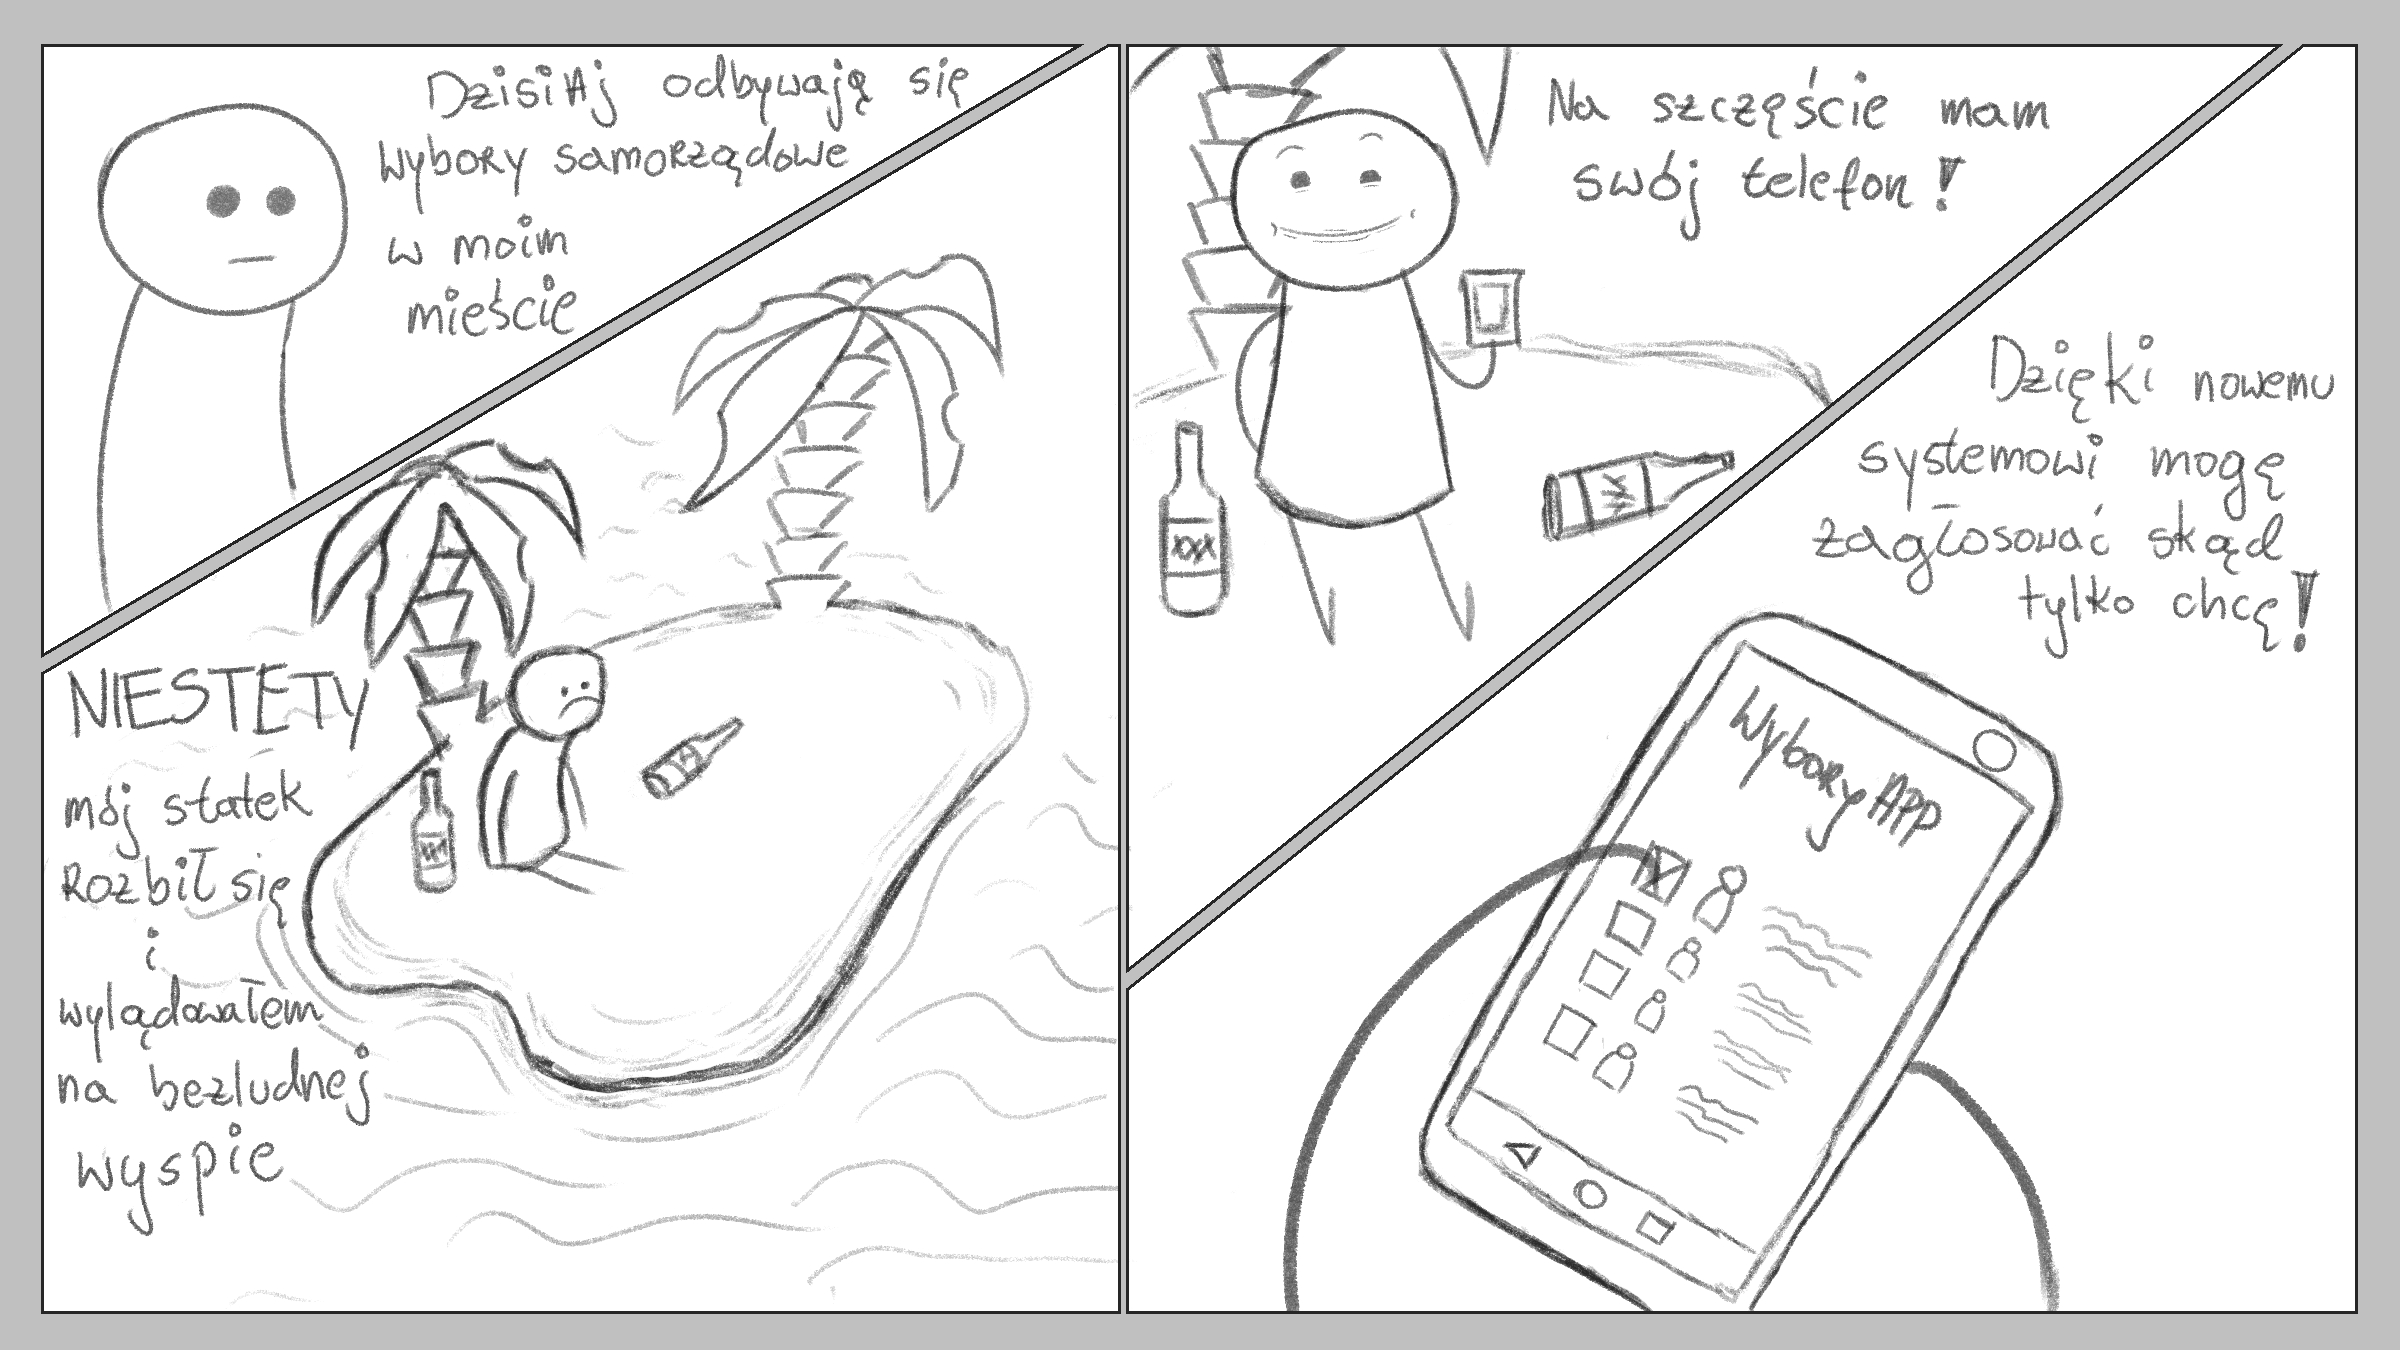 DzisiAj odbywają się
wybory samorządowe
w moim
mieście
NIESTETY
mój statek
Rozbił się
i
wylądowałem
na bezludnej
wyspie
xxx
Na szczęście mam
swój telefon!
xxx
Dzięki nowemu
systemowi mogę
zagłosować skąd
tylko chcę!
Wybory APP